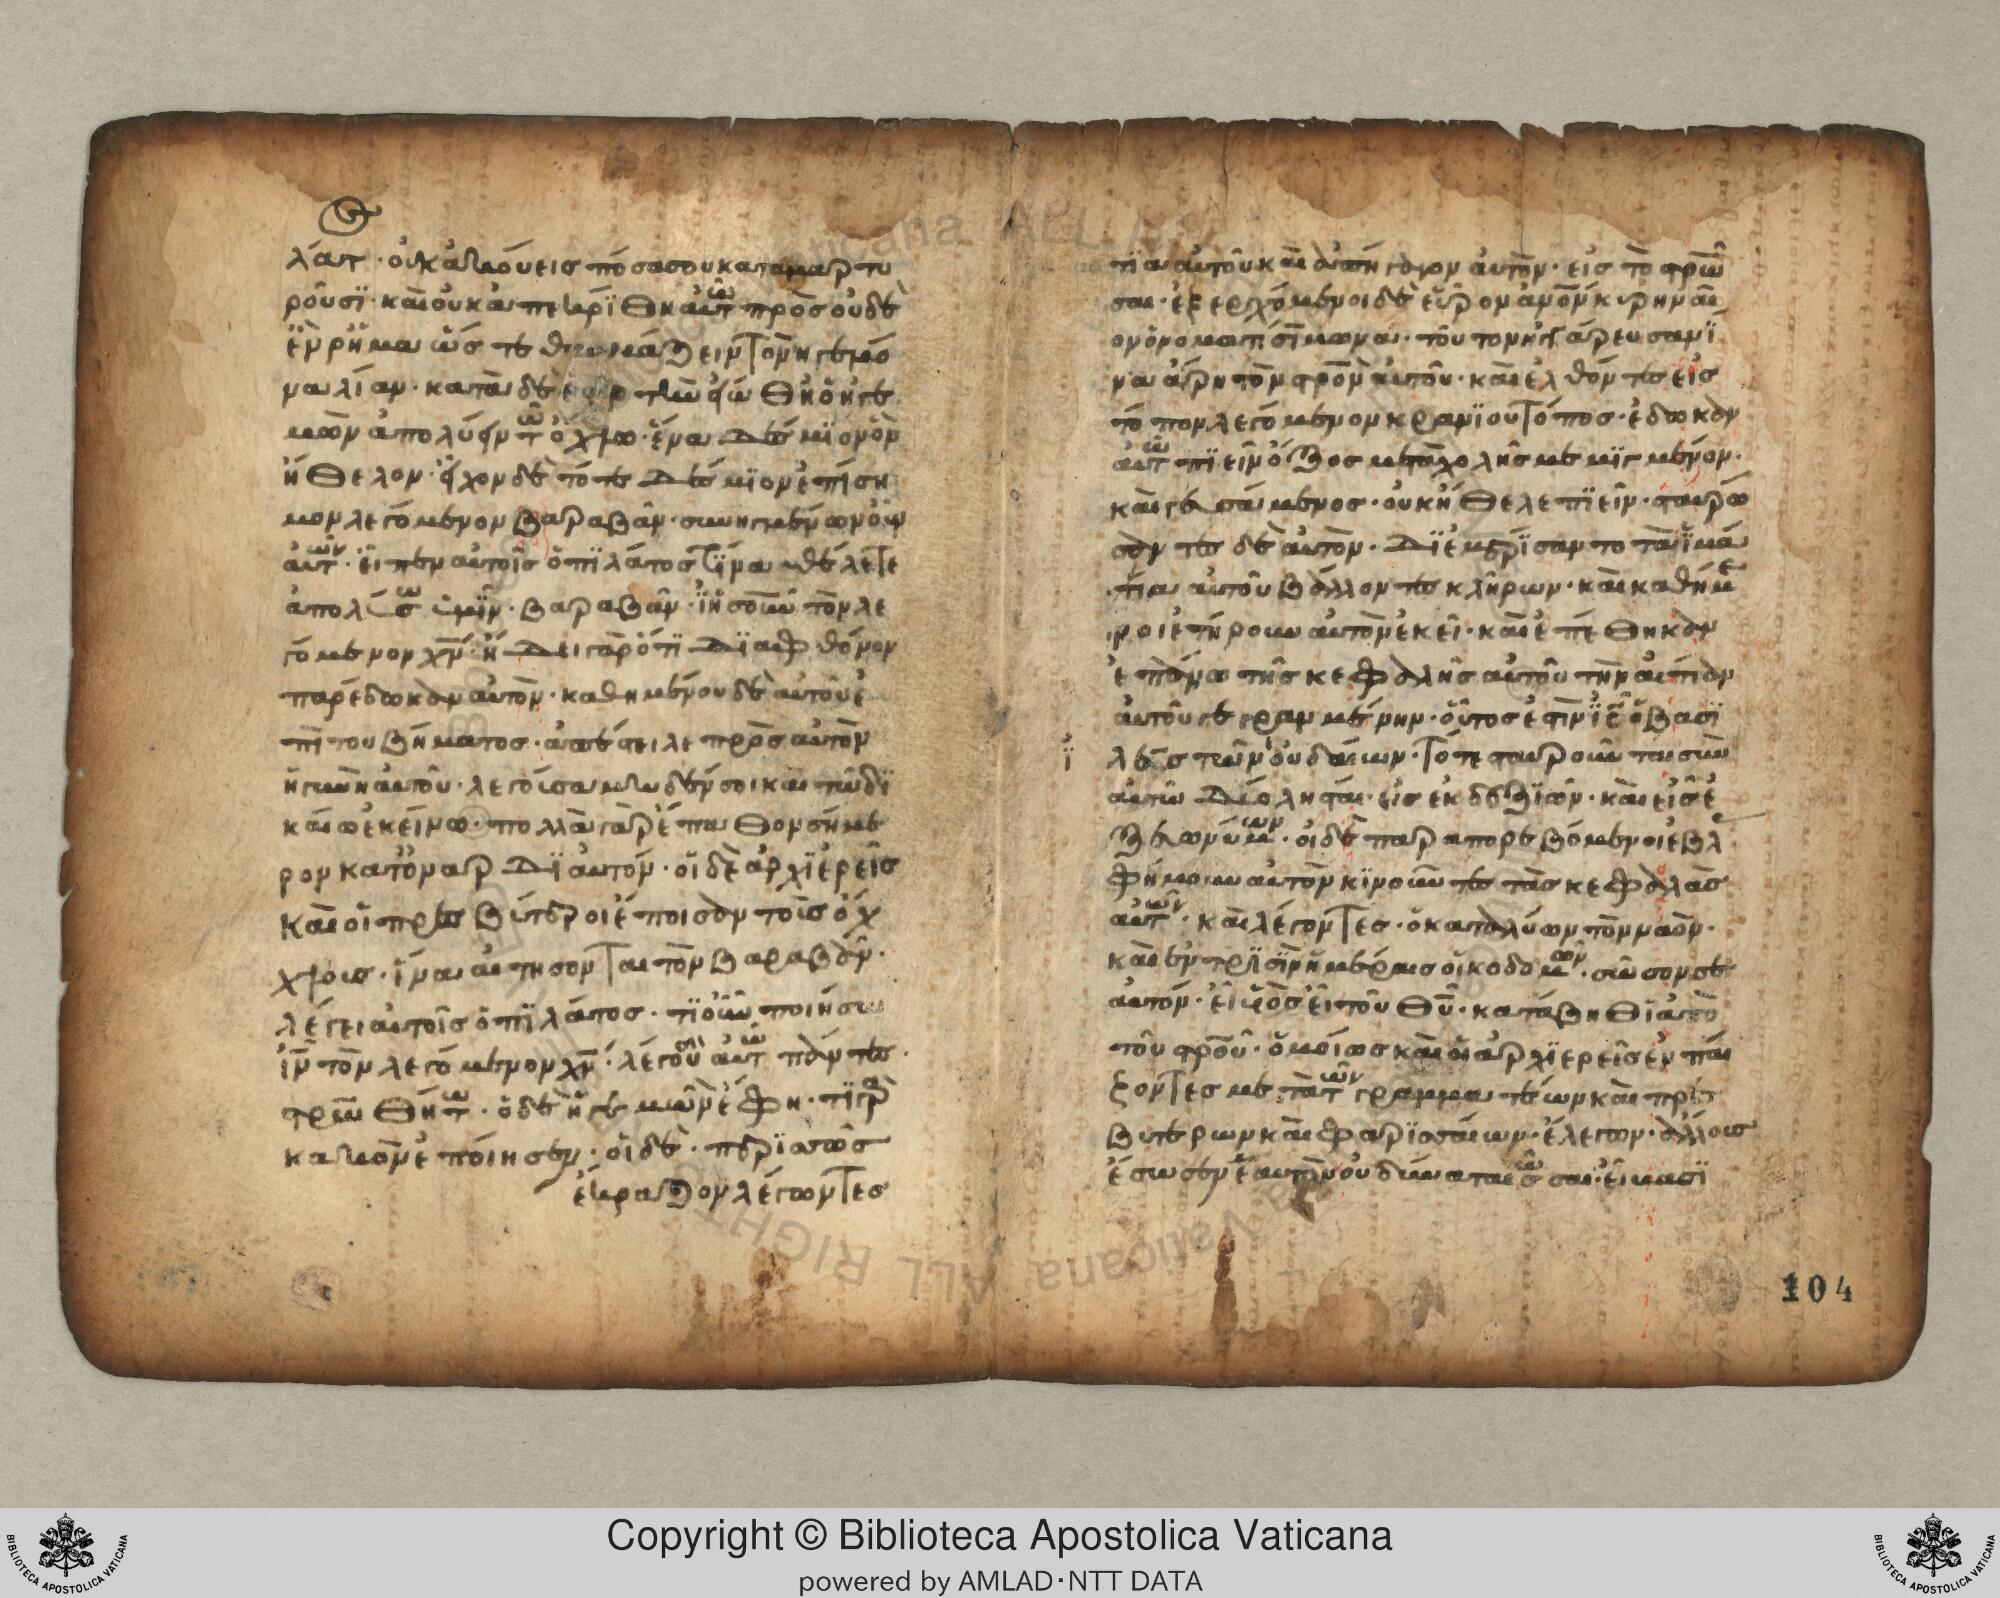 λάτ · οὐκ ἀκούεις πόσα σου καταμαρτυ
ροῦσϊ · καὶ οὐκ ἀπεκρίθη αὐτῶ πρὸς οὐδὲ
ἓν ρῆμα ὥστε θαυμάζειν τὸν ἡγεμό
να λίαν · κατὰ δὲ ἑορτὴν
μὼν ἀπολύειν τῶ ὄχλω · ἕνα δέσμϊον ὃν
ἤθελον · εἶχον δὲ τότε δέσμϊον ἐπίση
μον λεγόμενον βαραβᾶν · συνηγμένων οὖν
αὐτῶν · εἶπεν αὐτοῖς ὁ πϊλάτος τίνα θέλετε
ἀπολύσω ὑμῖν · βαραβᾶν · ἢ τὸν λε
γόμενον χν · ἤδει γὰρ ὅτι διὰ φθόνον
παρέδωκαν αὐτόν · καθημένου δὲ αὐτοῦ ἐ
πὶ τοῦ βήματος · ἀπέστειλε πρὸς αὐτὸν
ἡ γυνὴ αὐτοῦ · λέγουσα μηδέν σοι καὶ τῶ δϊ
καίω ἐκείνω · πολλὰ γὰρ ἔπαθον σήμε
ρον κατ ὄναρ δϊ αὐτόν · οἱ δὲ ἀρχϊερεῖς
καὶ οἱ πρεσβύτεροι ἔποισαν τοὺς ὄχ
χλους · ἵνα αἰτήσονται τὸν βαραβᾶν ·
λέγει αὐτοῖς ὁ πϊλάτος · τί οὖν ποιήσω
ιν τὸν λεγόμενον χν · λέγουσιν αὐτῶ πάντες ·
στρωθήτω · ὁ δὲ ἡγεμὼν ἔφη · τί γὰρ
κακὸν ἐποίησεν · οἱ δὲ · περϊσσῶς
ἔκραζον λέγωντες
τια αὐτοῦ καὶ ἀπήγαγον αὐτὸν · εἰς τὸ στρω
σαι · ἐξερχόμενοι δὲ εὗρον ἄνον κυρηναῖ
ον ὀνόματι σίμωνα · τοῦτον ἠγγάρευσαν ἵ
να ἄρη τὸν στρον αὐτοῦ · καὶ ἐλθόντες εἰς
τόπον λεγόμενον κρανίου τόπος · ἔδωκαν
αὐτῶ πϊεῖν ὄξος μετὰ χολῆς μεμϊγμένον ·
καὶ γευσάμενος · οὐκ ἤθελε πϊεῖν · σταυρώ
σαντες δὲ αὐτὸν · διεμερίσαντο τὰ ἱμά
τια αὐτοῦ βάλλοντες κλῆρων · καὶ καθήμε
νοι ἐτήρουν αὐτὸν ἐκεῖ · καὶ ἐπέθηκαν
ἐπάνω τῆς κεφαλῆς αὐτοῦ τὴν αἰτίαν
αὐτοῦ γεγραμμένην · οὗτός ἐστϊν ις ὁ βασϊ
ϊ
λεὺς τῶν ἰουδαίων · τότε σταυροῦνται σὺν
αὐτῶ δύο λησταί · εἷς ἐκ δεξϊῶν · καὶ εἷς ἐ
ξ εὐωνύμων · οἱ δὲ παραπορεβόμενοι ἐβλ
φήμουν αὐτὸν κϊνοῦντες τὰς κεφαλὰς
αὐτῶν · καὶ λέγοντες · ὁ καταλύων τὸν ναόν ·
καὶ ἐν τρϊσὶν ἡμέραις οἰκοδομῶν · σῶσον σε
αὐτόν · εἰ υἱὸς εἶ τοῦ θυ · κατάβηθι ἀπὸ
τοῦ στροῦ · ὁμοίως καὶ οἱ ἀρχϊερεῖς ἐνπαί
ζοντες μετὰ τῶν γραμματέων καὶ πρεσ
βυτέρων καὶ φαρϊσαίων · ἔλεγων · ἄλλους
ἔσωσεν ἑαυτὸν οὐ δύναται σῶσαι · εἰ βασϊ
104
Copyright © Biblioteca Apostolica Vaticana
powered by AMLAD·NTT DATA
BIBLIOTECA APOSTOLICA VATICANA
BIBLIOTECA APOSTOLICA VATICANA